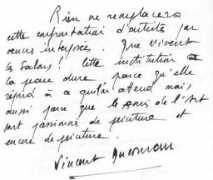 Rien ne remplacera
cette confrontation d'artiste par
œuvres interposées. Que vivent
les Salons ! Cette institution a
la peau dure parce qu'elle
répond à ce qu'on attend mais
aussi parce que les Amis de l'Art
sont passionnés de peinture et
encore de peinture.
Vincent